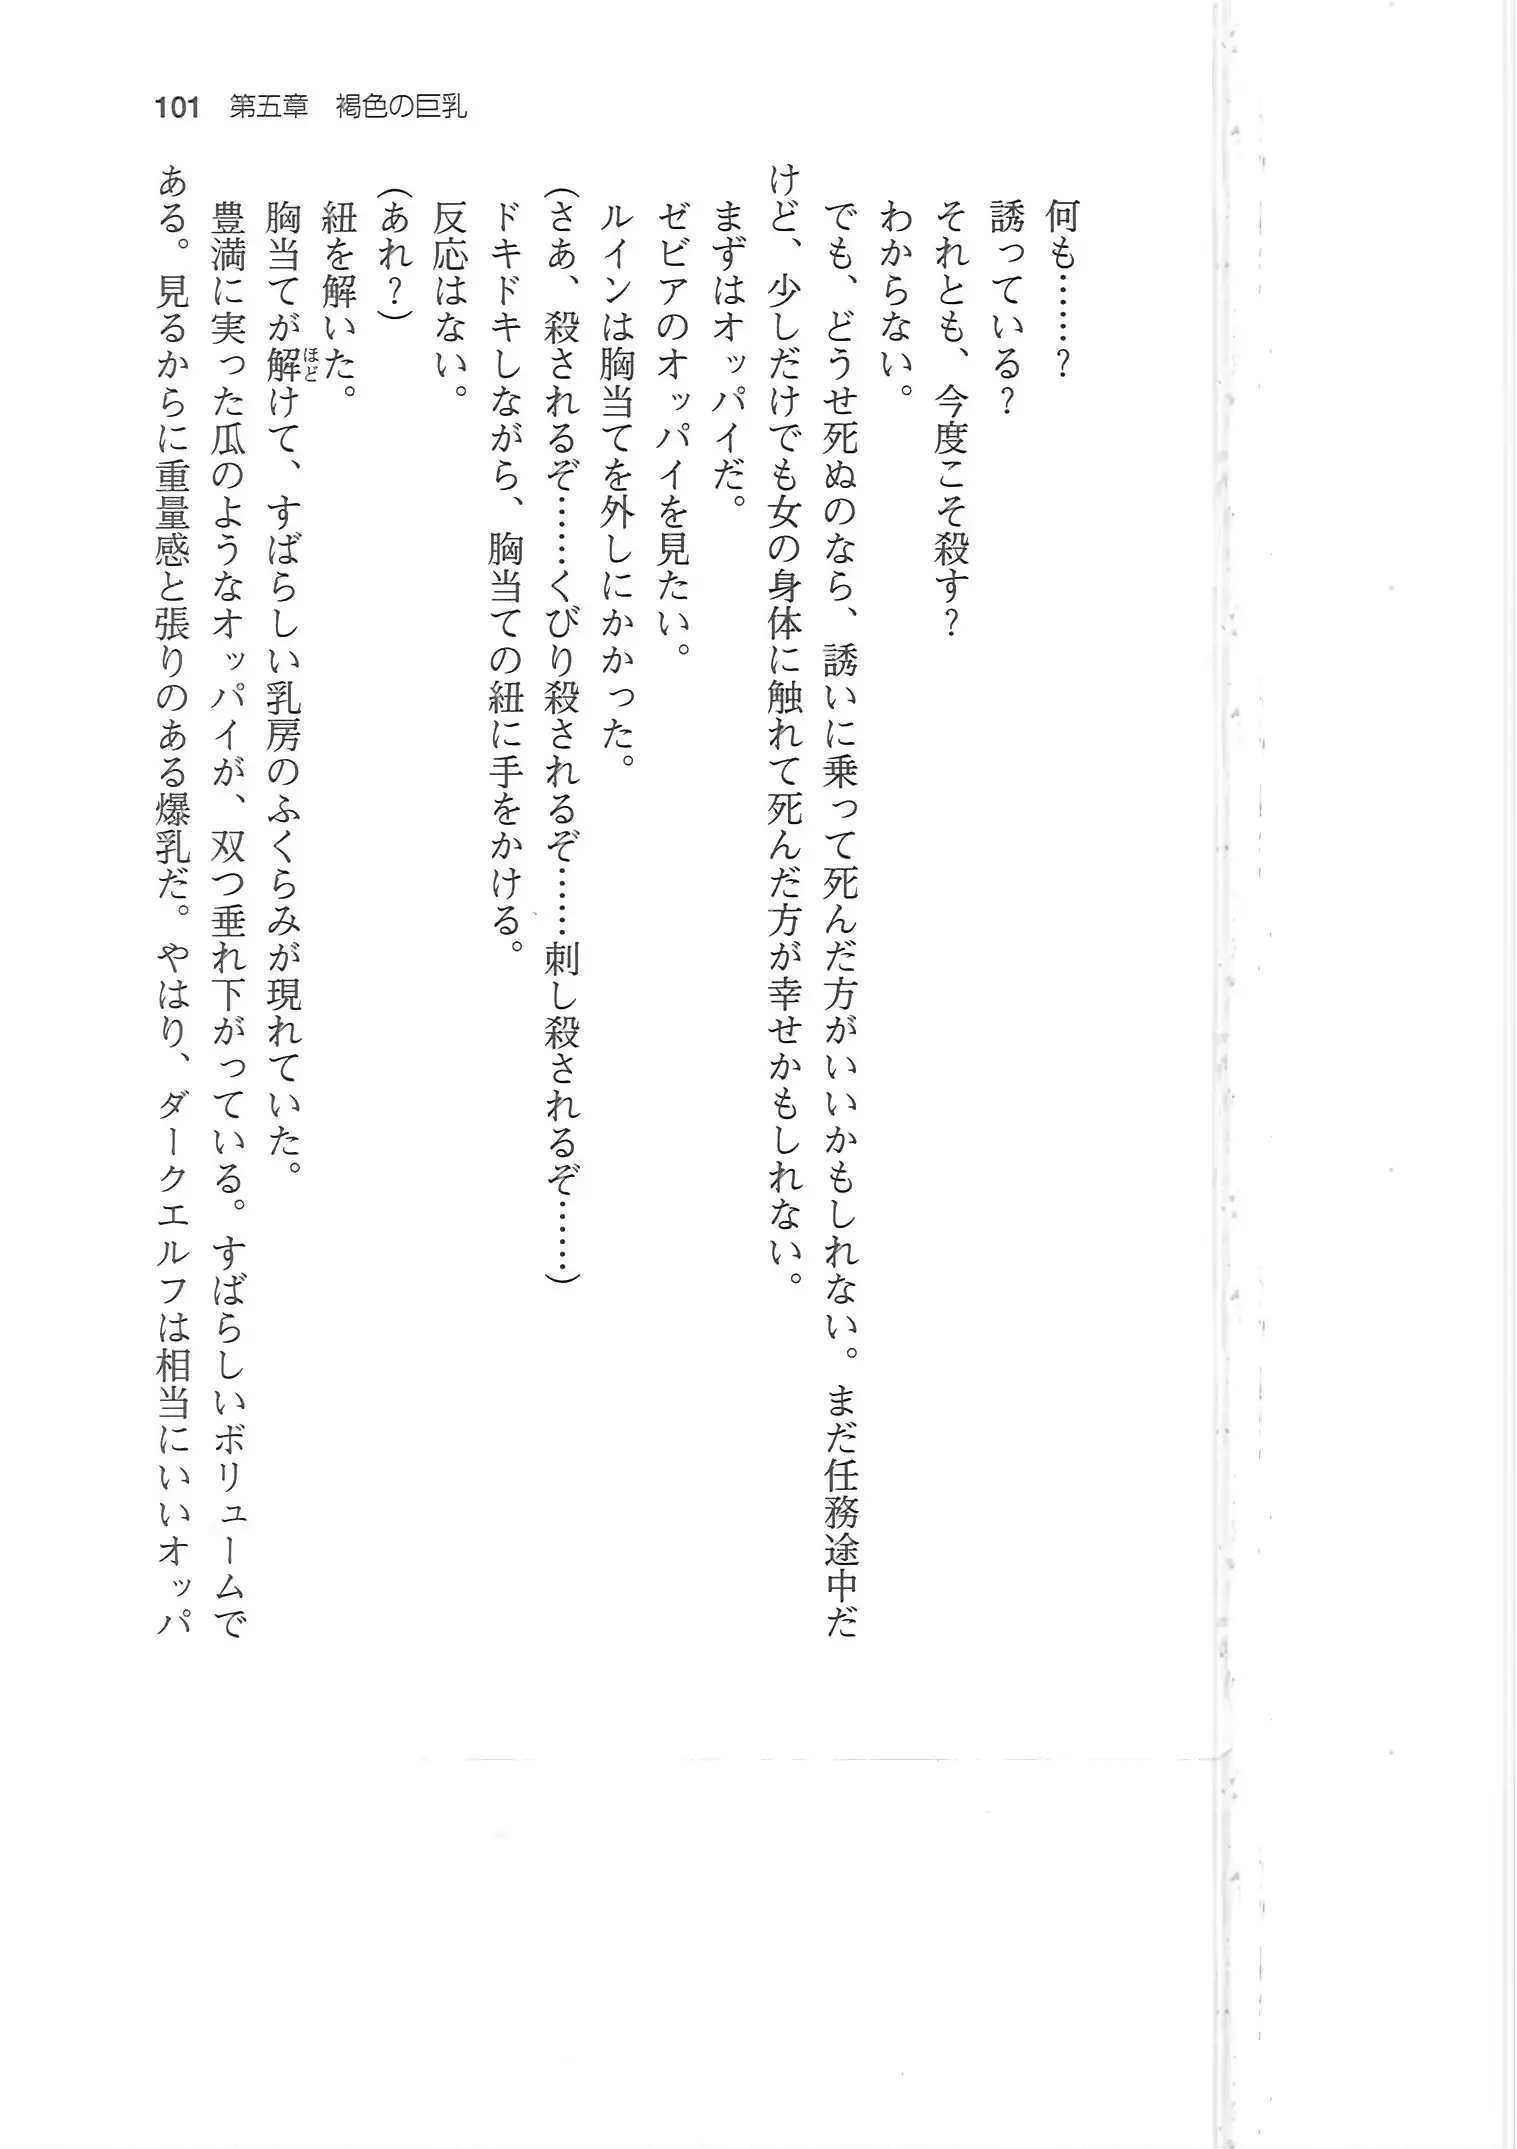 101 第五章　褐色の巨乳
何も……？
誘っている？
それとも、今度こそ殺す？
わからない。
でも、どうせ死ぬのなら、誘いに乗って死んだ方がいいかもしれない。まだ任務途中だ
けど、少しだけでも女の身体に触れて死んだ方が幸せかもしれない。
まずはオッパイだ。
ゼビアのオッパイを見たい。
ルインは胸当てを外しにかかった。
（さあ、殺されるぞ……くびり殺されるぞ……刺し殺されるぞ……）
ドキドキしながら、胸当ての紐に手をかける。
反応はない。
（あれ？）
紐を解いた。
胸当てが解けて、すばらしい乳房のふくらみが現れていた。
ほど
豊満に実った瓜のようなオッパイが、双つ垂れ下がっている。すばらしいボリュームで
ある。見るからに重量感と張りのある爆乳だ。やはり、ダークエルフは相当にいいオッパ